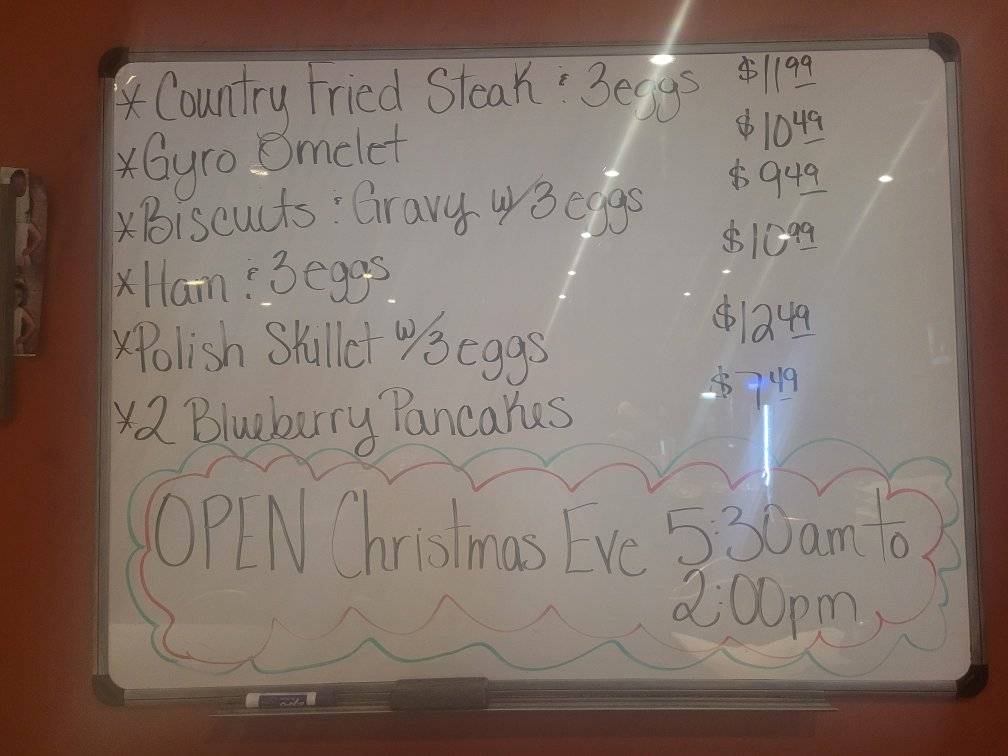 * Country Fried Steak & 3 eggs $11.99
* Gyro Omelet $10.49
* Biscuits & Gravy w/3 eggs $9.49
* Ham & 3 eggs $10.99
* Polish Skillet w/3 eggs $12.49
* 2 Blueberry Pancakes $7.49
OPEN Christmas Eve 5:30am to
2:00pm